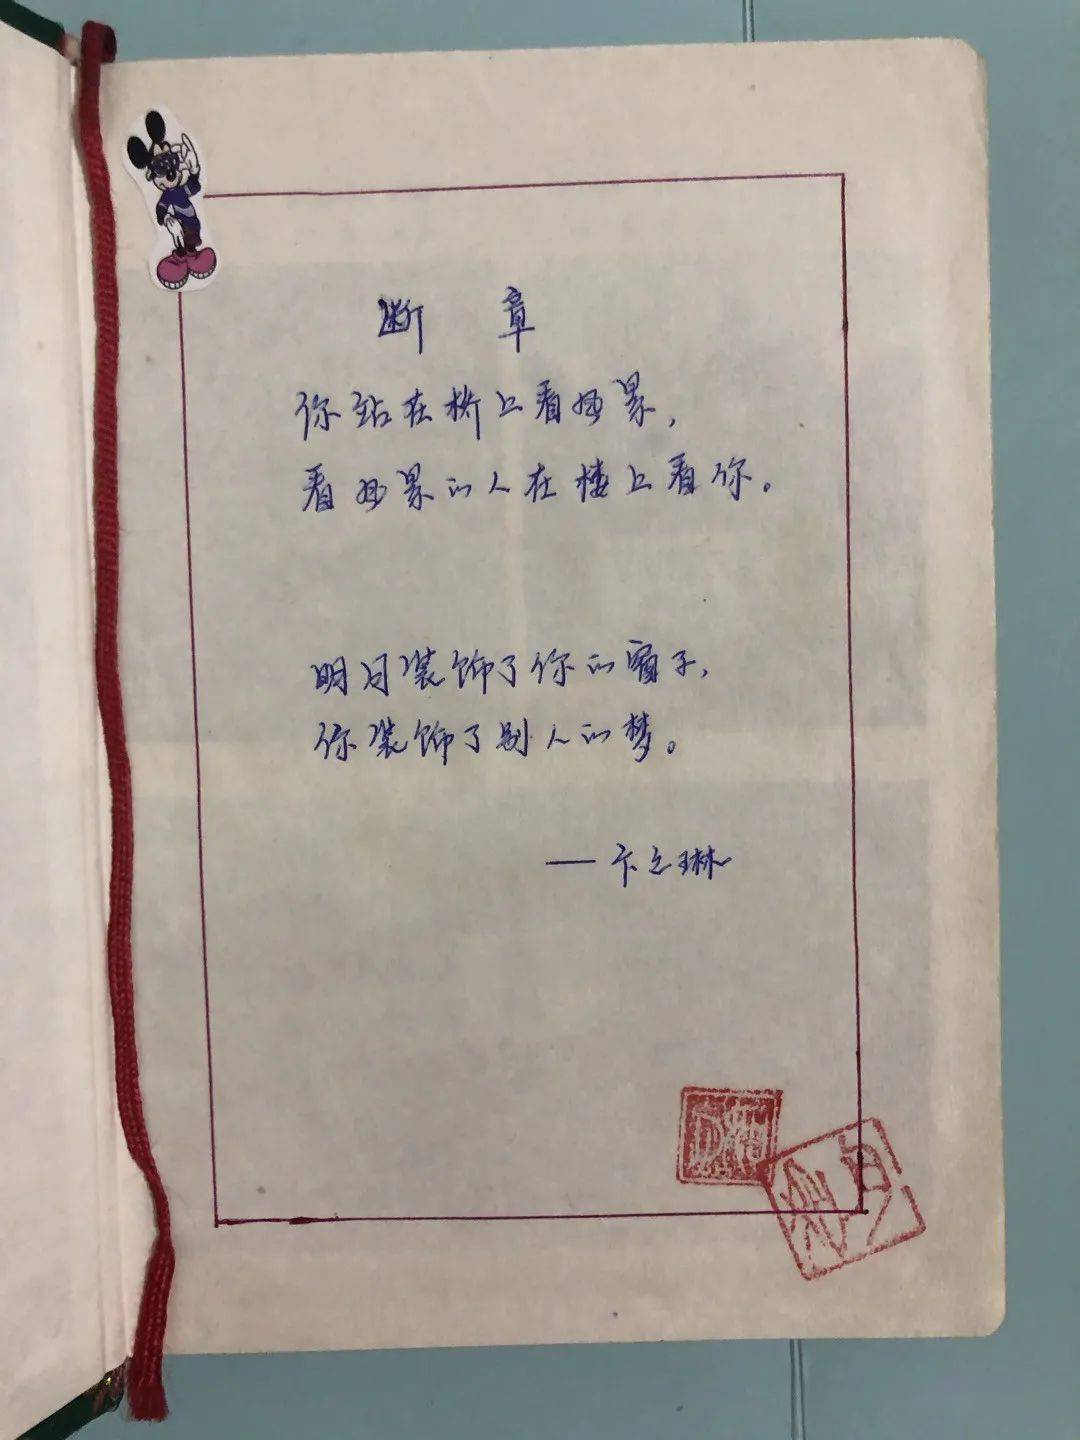 断章
你站在桥上看风景,
看风景的人在楼上看你。
明月装饰了你的窗子,
你装饰了别人的梦。
——卞之琳